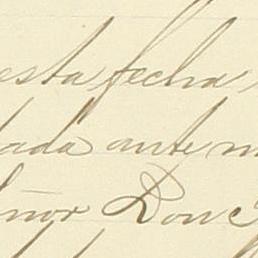 esta fecha
ada ante m
nor Don